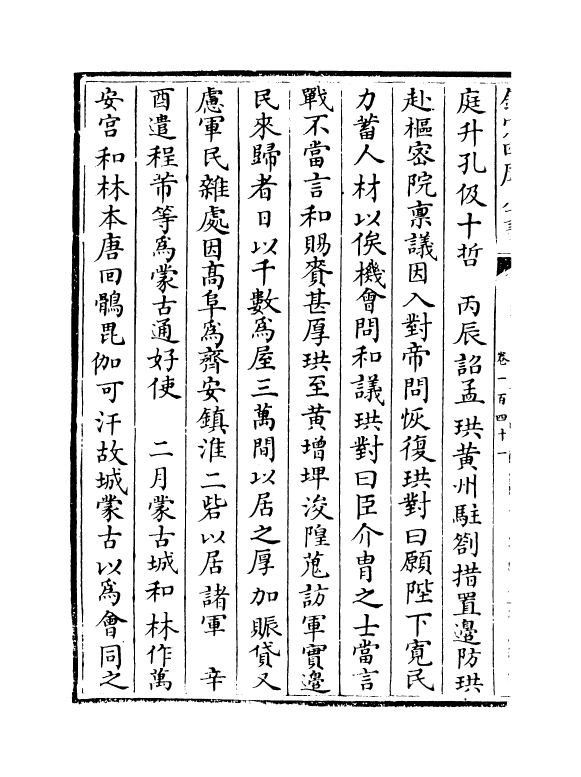 庭升孔伋十哲　丙辰詔孟珙黄州駐劄措置邊防珙
赴樞宻院禀議因入對帝問恢復珙對曰願陛下寛民
力蓄人材以俟機會問和議珙對曰臣介胄之士當言
戰不當言和賜賚甚厚珙至黄增埤浚隍蒐訪軍實邊
民來歸者日以千數為屋三萬間以居之厚加賑貸又
慮軍民雜處因髙阜為齊安鎮淮二砦以居諸軍　辛
酉遣程芾等為蒙古通好使　二月蒙古城和林作萬
安宫和林本唐回鶻毘伽可汗故城蒙古以為會同之
卷一百四十一